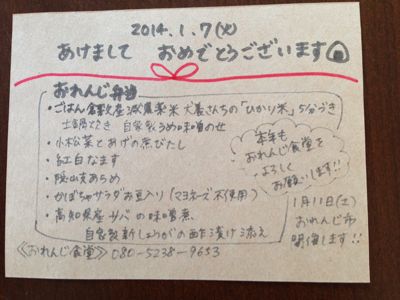 2014.1.7(火)
あけまして おめでとうございます
おれんじ弁当
・ごはん 倉敷産減農薬米 犬養さんちの「ひかり米」5分づき
土鍋炊き 自家製うめ味噌のせ
・小松菜とあげの煮びたし
・紅白なます
・隠岐あらめ
・かぼちゃサラダ お豆入り(マヨネーズ不使用)
・高知県産サバの味噌煮
自家製新しょうがの酢漬け添え
本年も
おれんじ食堂を
よろしく
お願いします!!
1月11日(土)
おれんじ市
開催します!!
《おれんじ食堂》 080-5238-9653